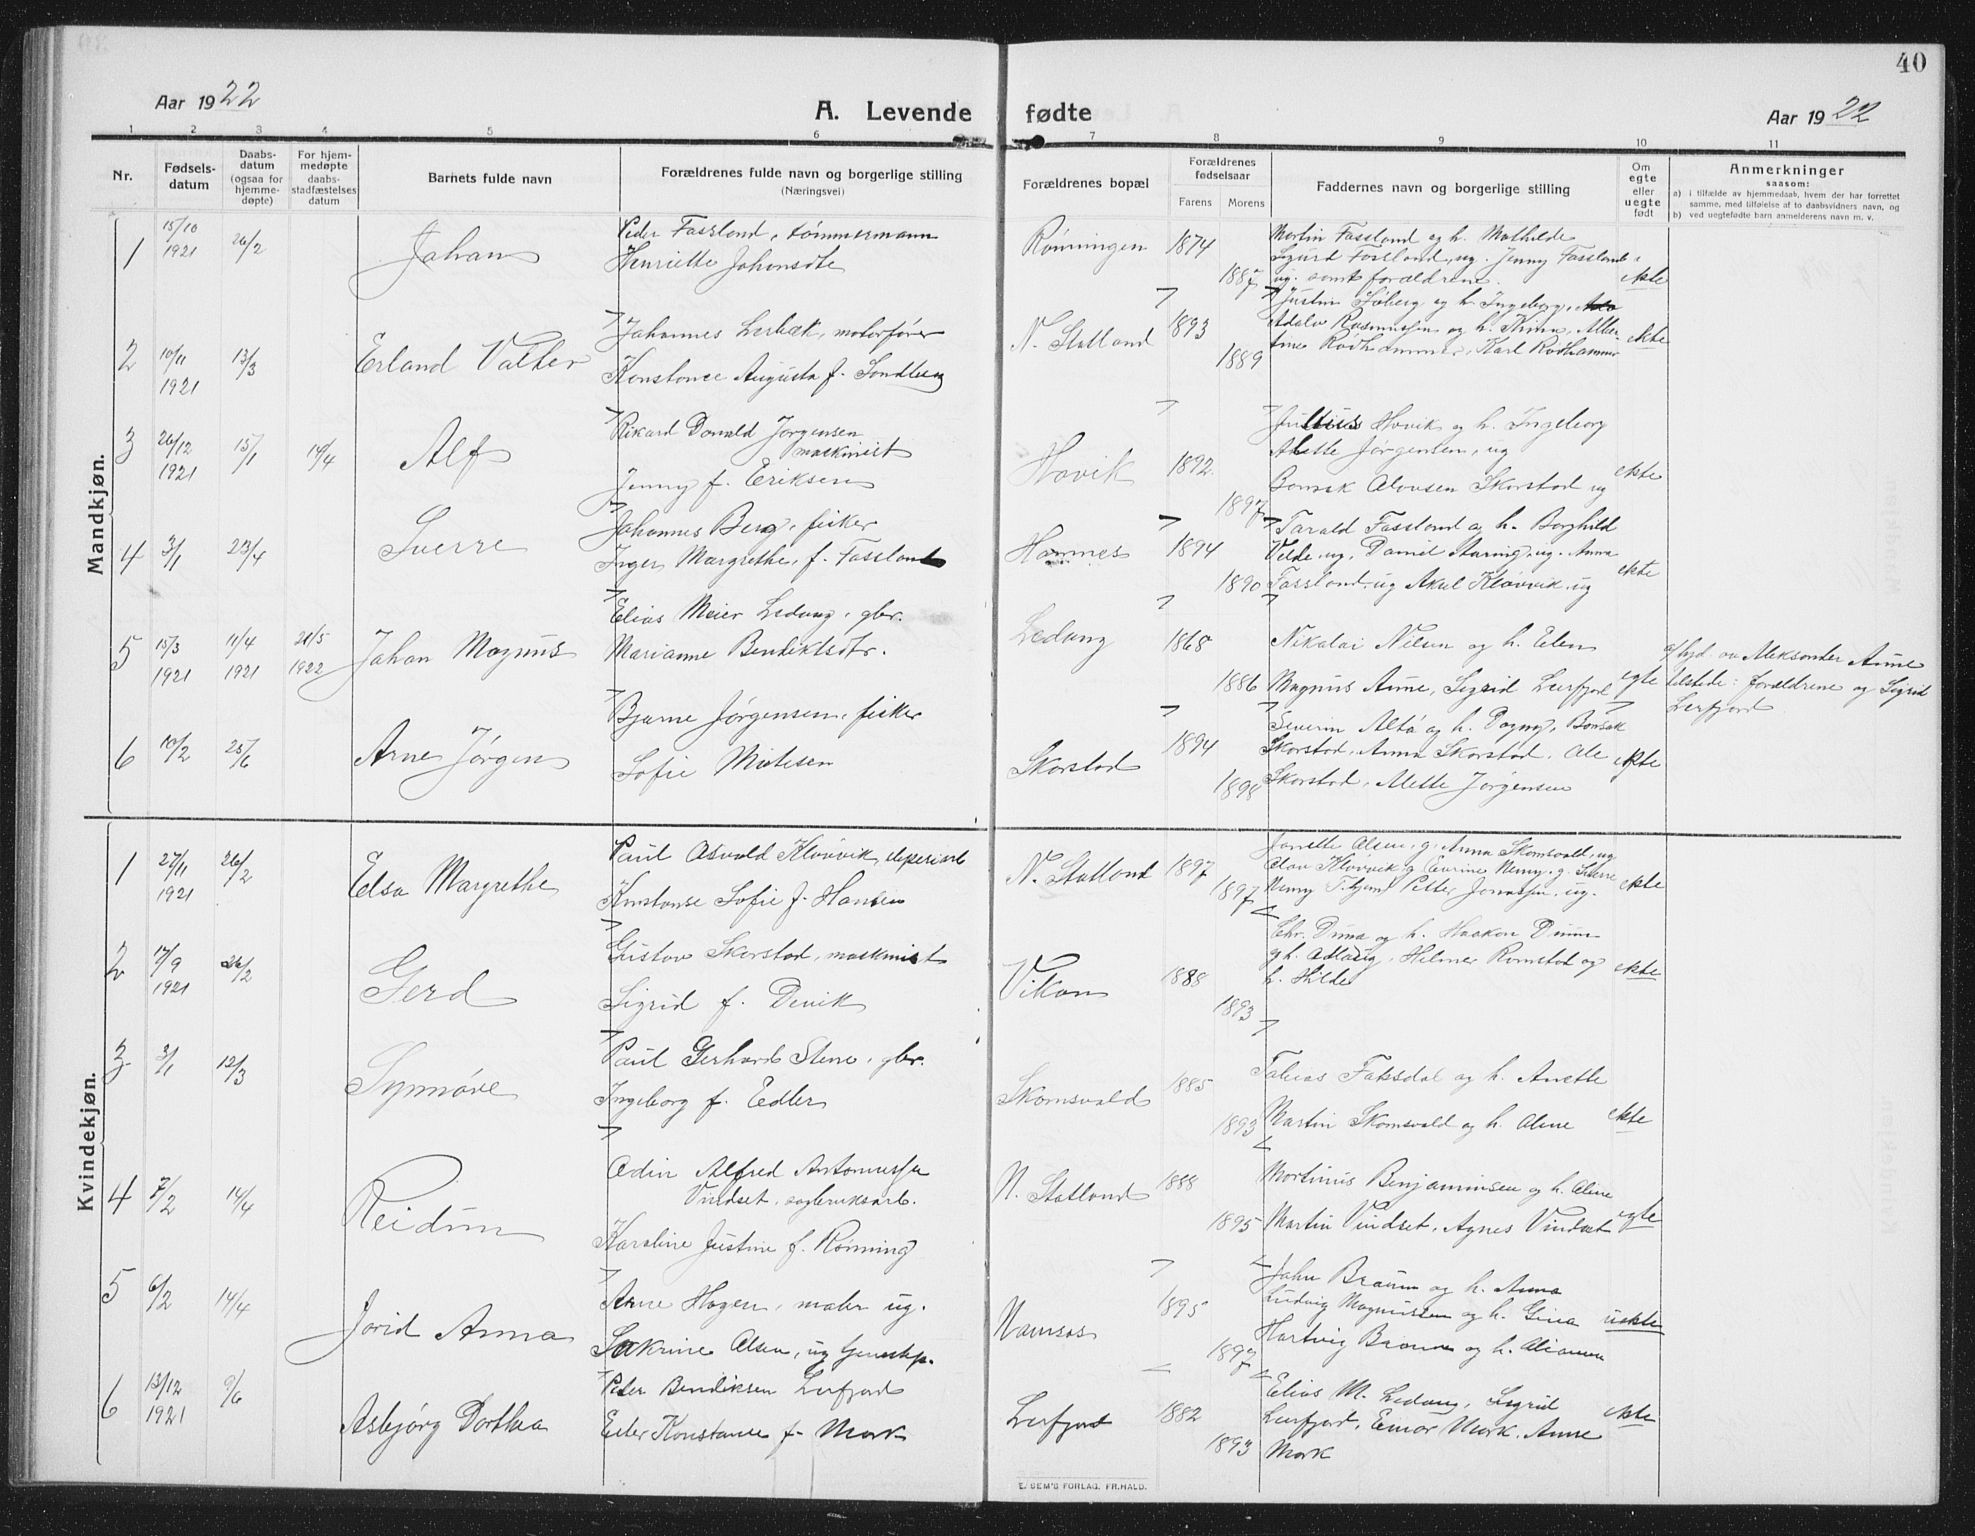 40
Aar 1922
A. Levende fødte
Aar 1922
1 2 3 4 5 6 7 8 9 10 11
Nr.
Fødsels-
datum
Daabs-
datum
(ogsaa for
hjemme-
døpte)
For hjem-
medøpte
daabs-
stadfæstelses
datum
Barnets fulde navn
Forældrenes fulde navn og borgerlige stilling
(Næringsvei)
Forældrenes bopæl
Forældrenes
fødselsaar
Farens Morens
Faddernes navn og borgerlige stilling
Om
egte
eller
uegte
født
Anmerkninger
saasom:
a) i tilfælde av hjemmedaab, hvem der har forrettet
samme, med tilføielse af to daabsvidners navn, og
b) ved uegtefødte barn anmelderens navn m. v.
Mandkjøn.
1 15/10 1921 26/2 Johan
Peder Fossland, tømmermann
Henriette Johansdtr
Rønningen 1874 1887
Martin Fossland og h. Mathilde
Sigurd Fossland, ug. Jenny Fossland,
ug. samt forældrene.
ekte
2 10/11 1921 13/3 Erland Valter
Johannes Lerbæk, motorfører
Konstance Augusta f. Sondberg
N. Statland 1893 1889
Justin Foberg og h. Ingeborg,
Adolv Rasmussen og h. Trina, Alber-
tine Rødhammer, Karl Rødhammer
ekte
3 26/12 1921 15/1 14/4 Alf
Rikard Donald Jørgensen
maskinist
Jenny f. Eriksen
Hovik 1892 1897
Julius Hovik og h. Ingeborg
Alette Jørgensen, ug
Bonsak Olousen Skorstad ug
ekte
4 3/1 23/4 Sverre
Johannes Berg, fisker
Inger Margrethe, f. Fossland
Hamnes 1894 1890
Tarald Fossland og h. Borghild
Velde, ug, Daniel Staring, ug. Anna
Fossland, ug Aksel Kløvvik, ug
ekte
5 15/3 1921 11/4 1921 21/5 1922 Johan Magnus
Elias Meier Ledang, gbr.
Marianne Bendiktsdtr.
Ledang 1868 1886
Nikolai Nilsen og h. Elen
Magnus Aune, Sigrid Lerfjord
egte
a/ hjd. av Aleksander Aune
tilstede: forældrene og Sigrid
Lerfjord
6 10/2 25/6 Arne Jørgen
Bjarne Jørgensen, fisker
Sofie Matesen
Skorstad 1894 1898
Severin Altø og h. Dagny, Bonsak
Skorstad, Anna Skorstad, Ole
Skorstad, Alette Jørgensen
ekte
Kvindekjøn.
1 27/11 1921 26/2 Elsa Margrethe
Paul Osvald Kløvvik, sliperiarb
Konstanse Sofie f. Hansen
N. Statland 1897 1897
Jørrette Olsen, g. Anna Skomsvold, ug
Olav Kløvvik, g Petter Jonassen, ug.
ekte
2 17/9 1921 26/2 Gerd
Gustav Skorstad, maskinist
Sigrid f. Devik
Vikan 1888 1893
Chr. Duna og h. Haakon Duun
og h. Aslaug, Hilmer Romstad og
h. Hilda
ekte
3 3/1 12/3 Synnøve
Paul Gerhard Stene, gbr.
Ingeborg f. Edler
Skomsvold 1885 1893
Tobias Faksdal og h. Anette
Martin Skomsvold og h. Oline
ekte
4 7/2 14/4 Reidun
Odin Alfred Antonussen
Vindset, sagbruksarb.
Karoline Justine f. Rønning
N. Statland 1888 1895
Martinus Benjaminsen og h. Oline
Martin Vindset, Agnes Vindset
egte
5 6/2 14/4 Jorid Anna
Arne Hagen, maler ug.
Sakrine Olsen, ug tjenestep.
Namsos 1895 1897
John Braun og h. Anna
Ludvig Magnussen og h. Gina
Hartvig Braun og h. Oliannna
uekte
6 13/12 1921 9/6 Asbjørg Dorthea
Peder Bendiksen Lerfjord
Eder Konstanse f. Mork
Lerfjord 1882 1893
Elias M. Ledang, Sigrid
Lerfjord, Einar Mork, Anne
Mork
ekte
E. SEM'S FORLAG, FR.HALD.